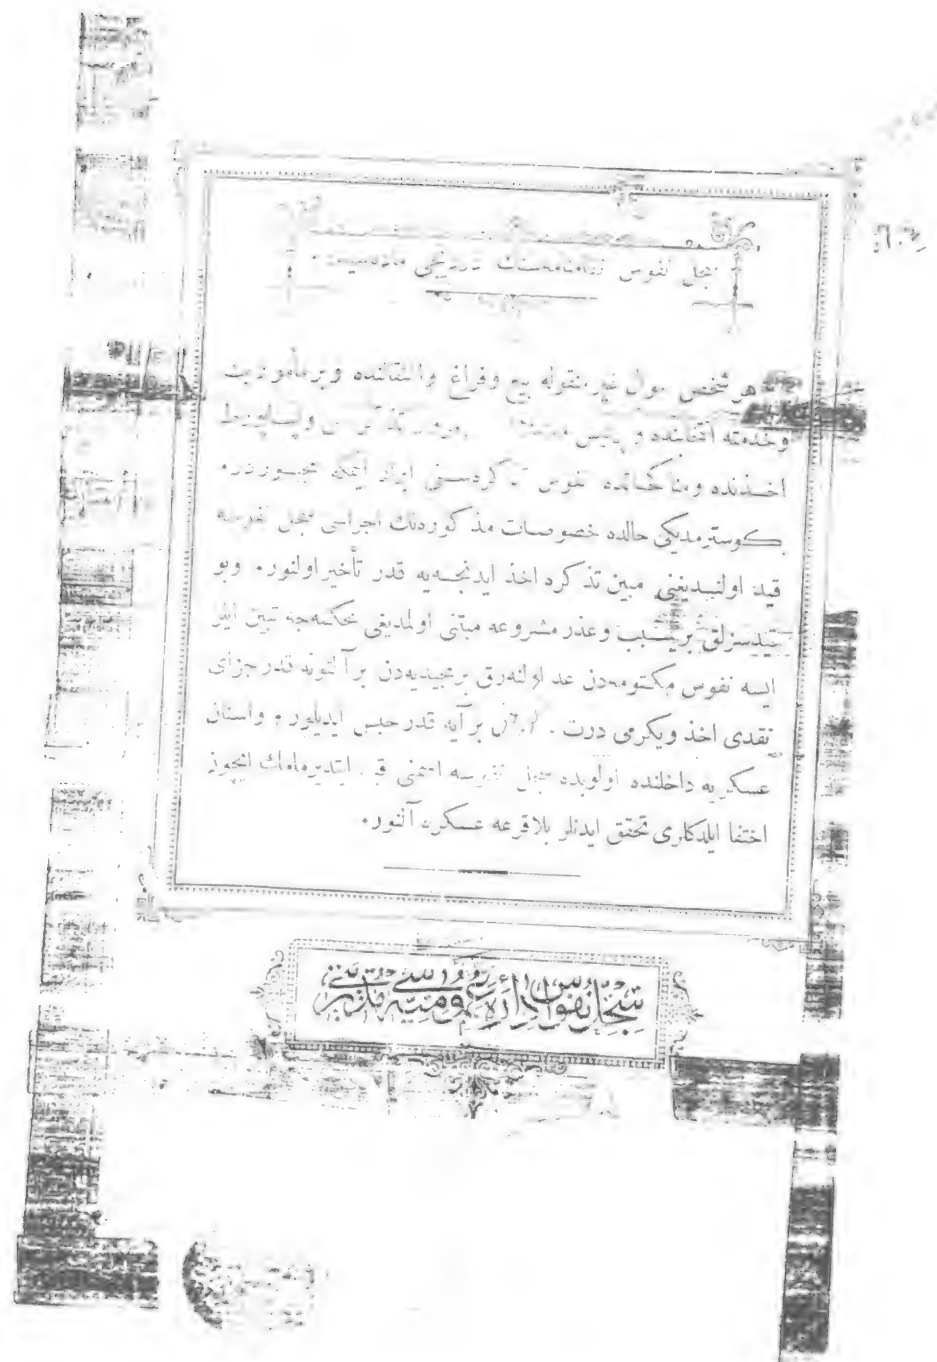 سجل نفوس نظامنامه‌سنك درنجی ماده‌سیدر
هر شخص اموال غیر منقوله بیع و فراغ و انتقالنده و بر مأموریت
و خدمته انتخابنده و پولیس تذكره‌سی و پساپورط
اخذنده و مناكحاتده نفوس تذكره‌سنی ابراز ایتمكه مجبوردر.
كوسترمدیكی حالده خصوصات مذكوره‌نك اجراسی سجل نفوسه
قید اولندیغنی مبین تذكره اخذ ایدنجه‌یه قدر تأخیر اولنور. وبو
قیدسزلق بر سبب وعذر مشروعه مبتنی اولمدیغی محكمه‌جه تبین ایلر
ایسه نفوس مكتومه‌دن عد اولنه‌رق بر مجیدیه‌دن بر آلتونه قدر جزای
نقدی اخذ ویكرمی درت بر آیه قدر حبس ایدیلور و اسنان
عسكریه داخلنده اولوبده سجل نفوسه اسمنی قید ایتدیرمامك ایچون
اختفا ایلدكلری تحقق ایدنلر بلا قرعه عسكره آلنور.
سجل نفوس اداره عمومیه‌سی مدیریتی